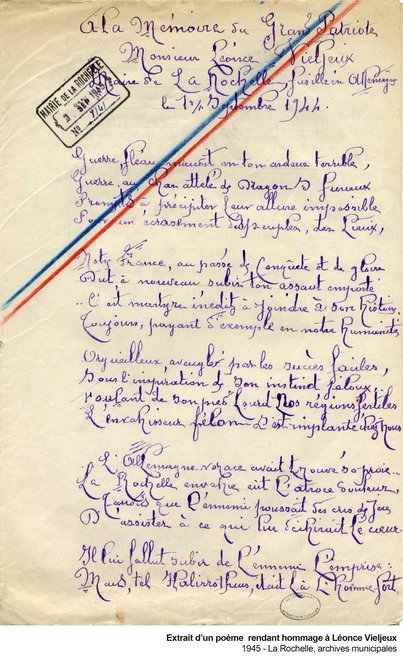 A La Mémoire du Grand Patriote
Monsieur Léonce Vieljeux
Maire de La Rochelle fusillé en Allemagne
le 1er Septembre 1944.
MAIRIE DE LA ROCHELLE
No
Guerre, fléau maudit en ton ardeur terrible,
Guerre, au Char attelé de Dragons furieux
Prompts à précipiter leur allure impossible
Pour un écrasement des peuples, des Lieux,
Notre France, au passé de Conquête et de gloire
Dut à nouveau subir ton assaut emporté
C'est martyre inédit à joindre à son histoire,
Toujours, payant d'exemple en notre humanité
Orgueilleux, aveuglé par les succès faciles,
Sous l'inspiration de son instinct jaloux,
Foulant de son pied Lourd Nos régions fertiles
L'envahisseur félon s'est implanté chez Nous
L'Allemagne vorace avait trouvé sa proie...
La Rochelle envahie eût l'atroce douleur,
Tandis que L'ennemi poussait des cris de Joie
D'assister à ce qui lui déchirait Le cœur.
Il lui fallut subir de L'ennemi L'emprise:
Mais, tel était Là L'homme fort,
Extrait d'un poème rendant hommage à Léonce Vieljeux
1945 - La Rochelle, archives municipales